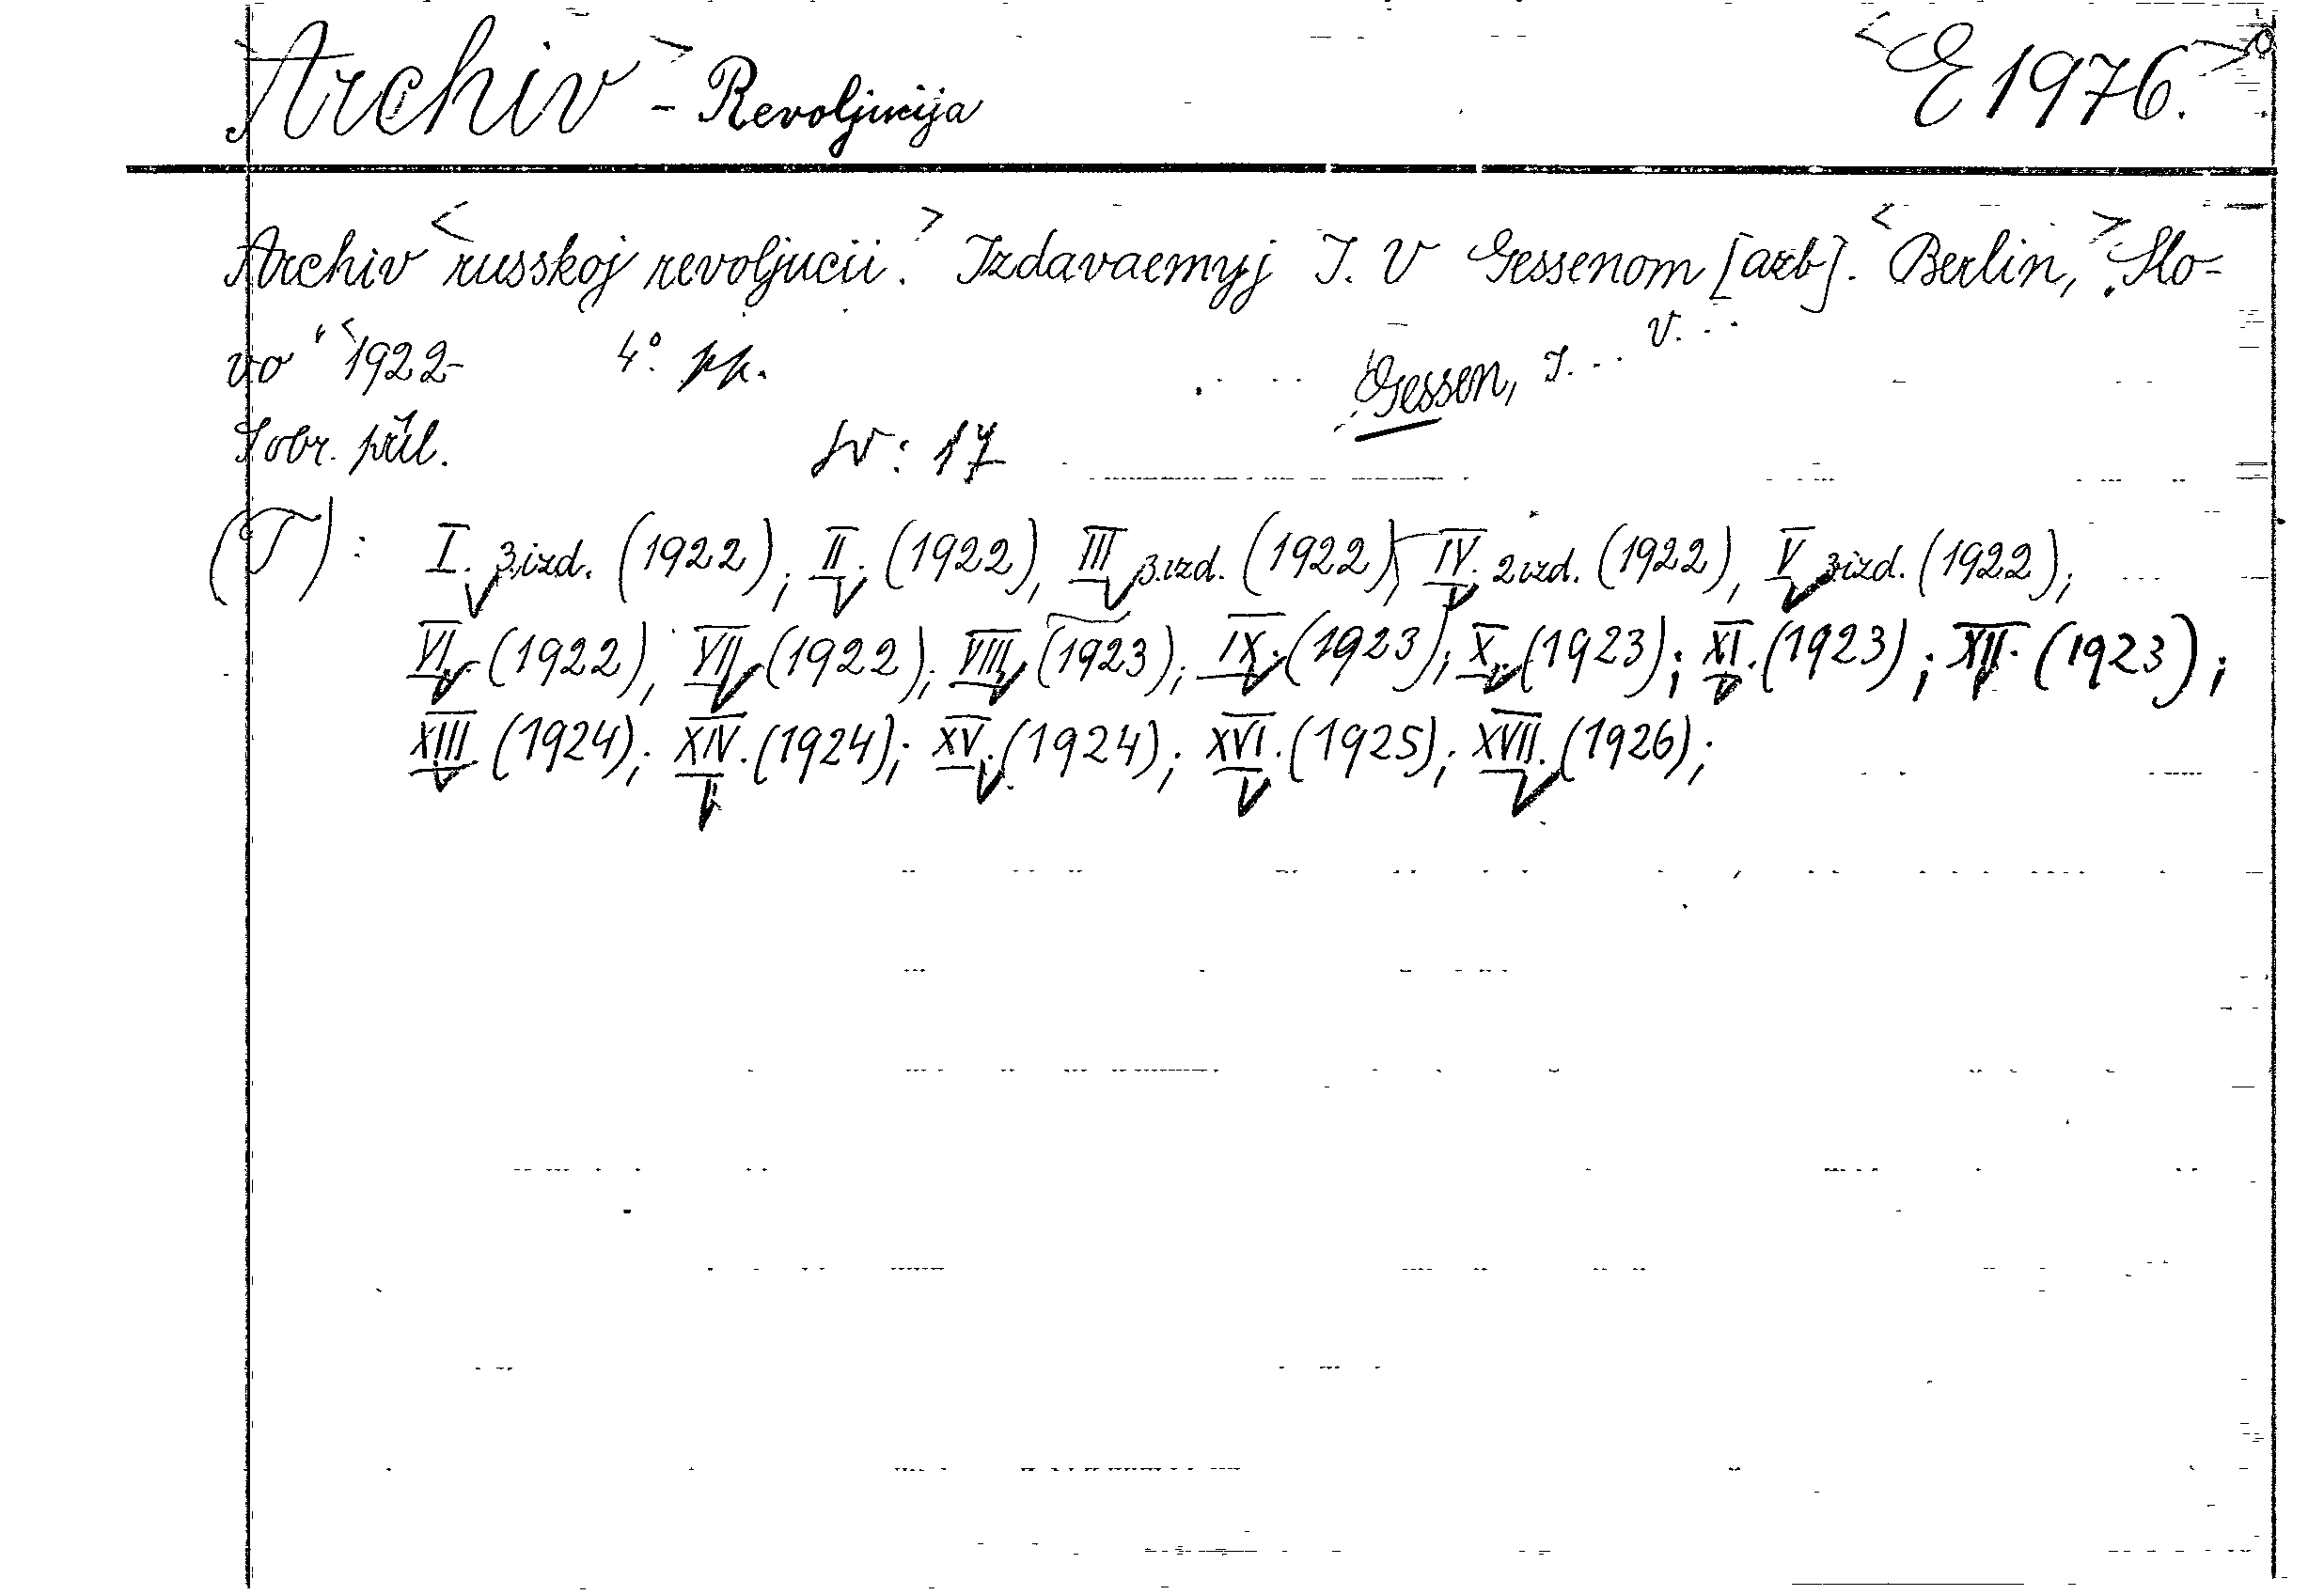 Archiv - Revoljucija <E 1976.>
Archiv <russkoj revoljucii.> Izdavaemyj I. V Gessenom [azb]. <Berlin,> „Slo-
vo“ <1922- 4°. pp. Gessen, I... V...
Sobr. příl. sv: 17
(T): I. 3.izd. (1922); II. (1922), III 3.izd. (1922), IV. 2izd. (1922), V 3izd. (1922);
VI. (1922), VII (1922); VIII. (1923); IX. (1923); X. (1923); XI. (1923); XII. (1923);
XIII (1924); XIV. (1924); XV. (1924); XVI. (1925); XVII. (1926);